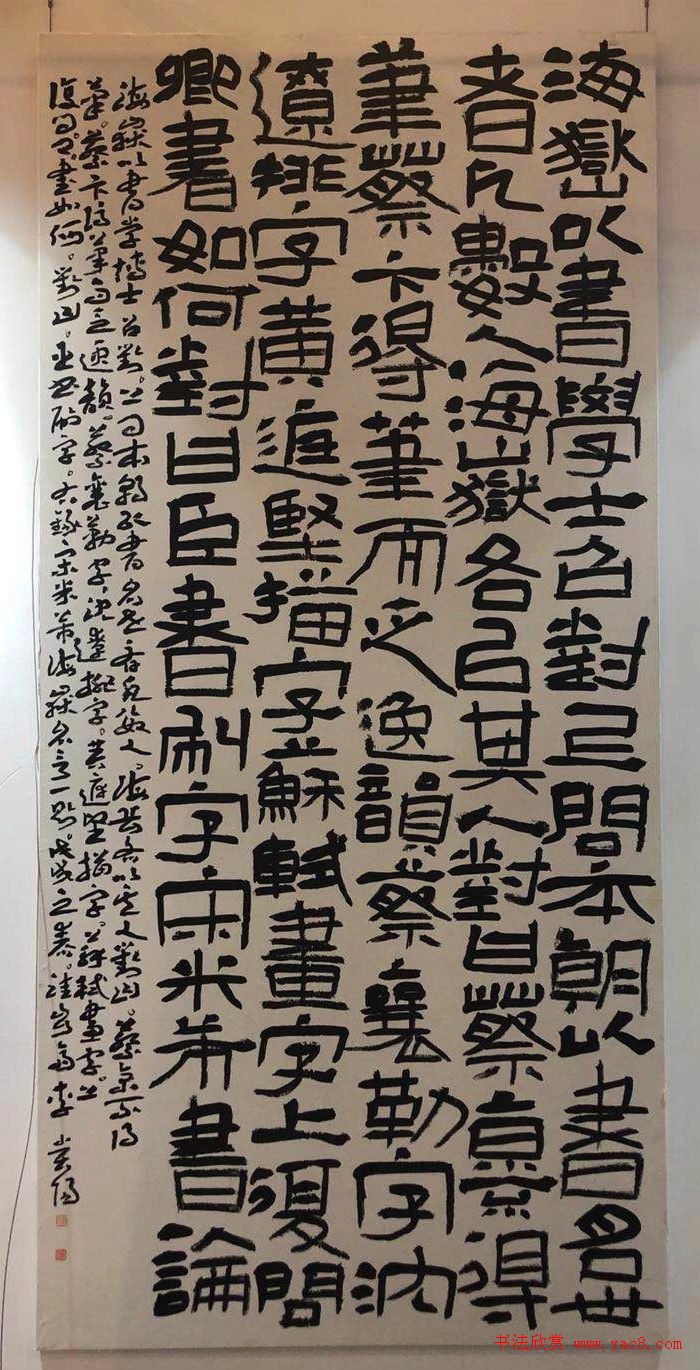 海嶽以書學士召對已問本朝以書名世
者凡數人海嶽各以其人對曰蔡京得
筆蔡卞得筆而乏逸韻蔡襄勒字沈
遼排字黃庭堅描字蘇軾畫字上復問
卿書如何對曰臣書刷字宋米芾書論
海嶽以書學博士召對。上問本朝以書名世者凡數人。海嶽各以其人對曰。蔡京不得
筆。蔡卞得筆而乏逸韻。蔡襄勒字。沈遼排字。黃庭堅描字。蘇軾畫字。上
復問。卿書如何。對曰。臣書刷字。右錄宋米芾海嶽名言一則。戊戌之春。李
书法欣赏 www.yac8.com